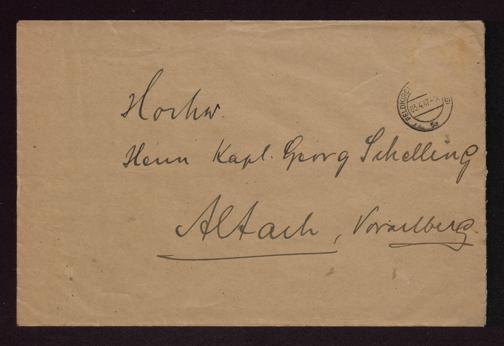 Hochw.
Herrn Kapl. Georg Schelling
Altach, Vorarlberg.
FELDKIRCH